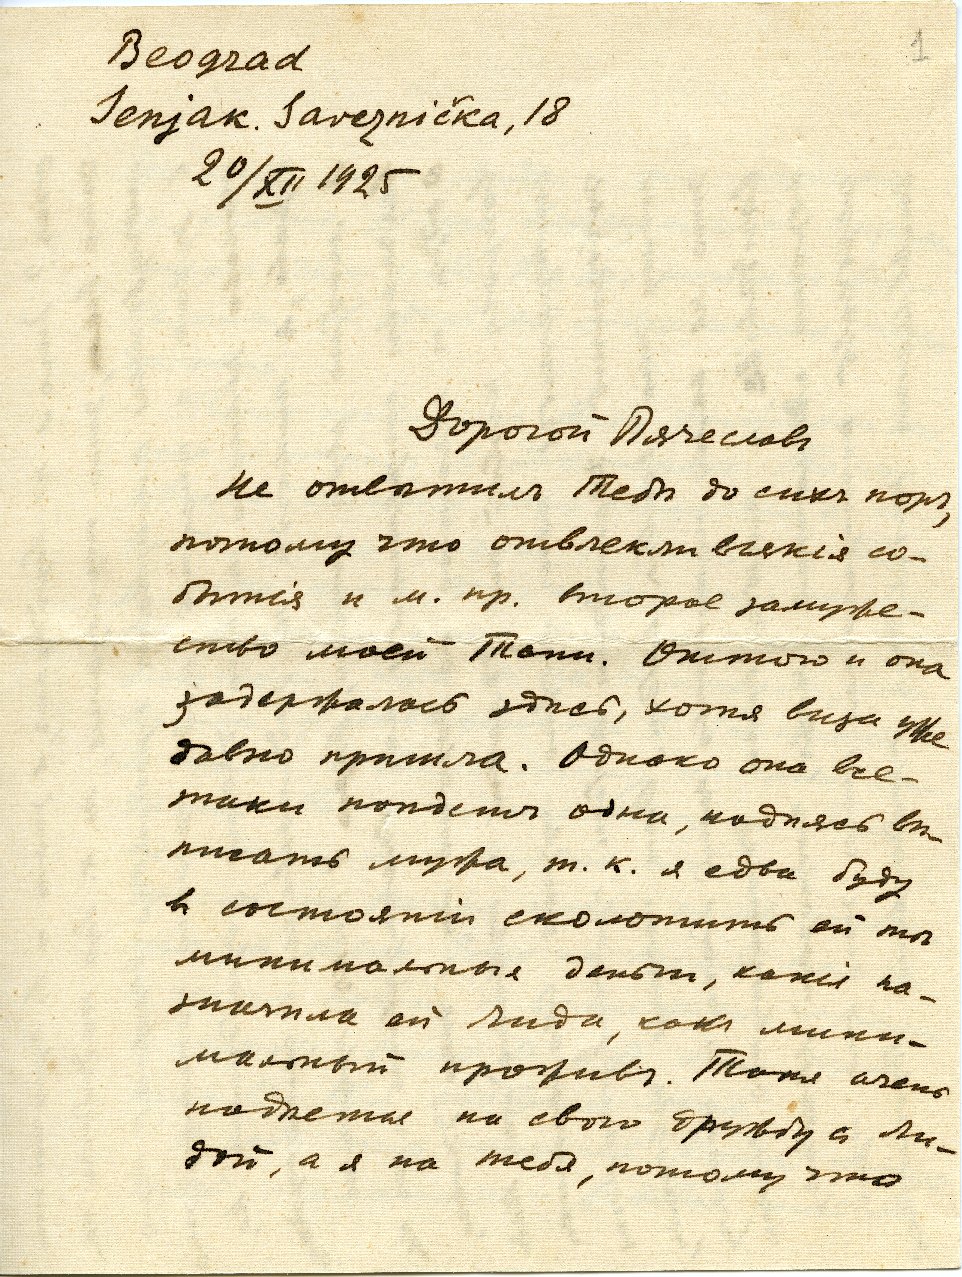 1
Beograd
Senjak. Saveznička, 18
20/XII 1925
Дорогой Вячеславъ
Не отвѣтилъ Тебѣ до сихъ поръ,
потому что отвлекли всякія со-
бытія и м. пр. второе замуже-
ство моей Тани. Оттого и она
задержалась здѣсь, хотя виза уже
давно пришла. Однако она все-
таки поѣдетъ одна, надѣясь вы-
писать мужа, т. к. я едва буду
въ состояніи сколотить ей тѣ
минимальныя деньги, какія на-
значила ей Лида, какъ мини-
мальный проживъ. Таня очень
надѣется на свою дружбу съ Ли-
дой, а я на тебя, потому что